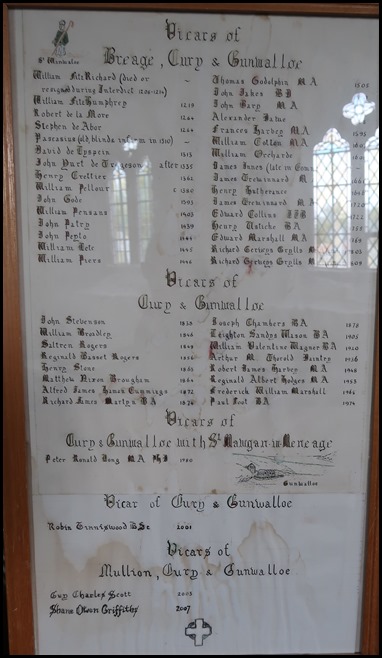 Vicars of
Breage, Cury & Gunwalloe
St Winwaloe
William FitzRichard (died or
resigned during Interdict 1208-1214)
William FitzHumphrey 1219
Robert de la More 1264
Stephen de Abor 1264
Pascasius (old, blind & infirm in 1310) –
David de Lyspein 1313
John Yurl de Tregeson after 1335
Henry Crettier 1362
William Pellour c 1380
John Gode 1393
William Pensans 1403
John Patry 1439
John Pepto 1444
William Lote 1446
William Piers 1466
– Thomas Godolphin M A 1505
John Jakes B D
John Bary M A
Alexander Dawe
Frances Harvey M A 1595
William Cotton M A
William Orcharde
James Innes (late in Comm
James Trewinnard M A
Henry Hatherence
James Trewinnard M A
Edward Collins LLB
Henry Usticke BA
Edward Marshall MA
Richard Gerveys Grylls MA
Richard Gerveys Grylls MA 1809
Vicars of
Cury & Gunwalloe
John Stevenson 1838
William Broadley 1846
Saltren Rogers 1848
Reginald Basset Rogers 1856
Henry Stone 1865
Matthew Nixon Brougham 1864
Alfred James Hamok Cummings 1872
Richard James Martyn BA 1874
Joseph Chambers BA 1878
Leighton Sandys Wason BA 1905
William Valentine Wagner BA 1920
Arthur M. Thorold Faintry 1936
Robert James Harvey MA 1948
Reginald Albert Hodges MA 1953
Frederick William Marshall 1965
Paul Foot BA 1974
Vicars of
Cury & Gunwalloe with St Mawgan-in-Meneage
Peter Ronald Long MA PhD 1980
Gunwalloe
Vicar of Cury & Gunwalloe
Robin Tinniswood BSc 2001
Vicars of
Mullion, Cury & Gunwalloe
Guy Charles Scott 2003
Shane Owen Griffiths 2007